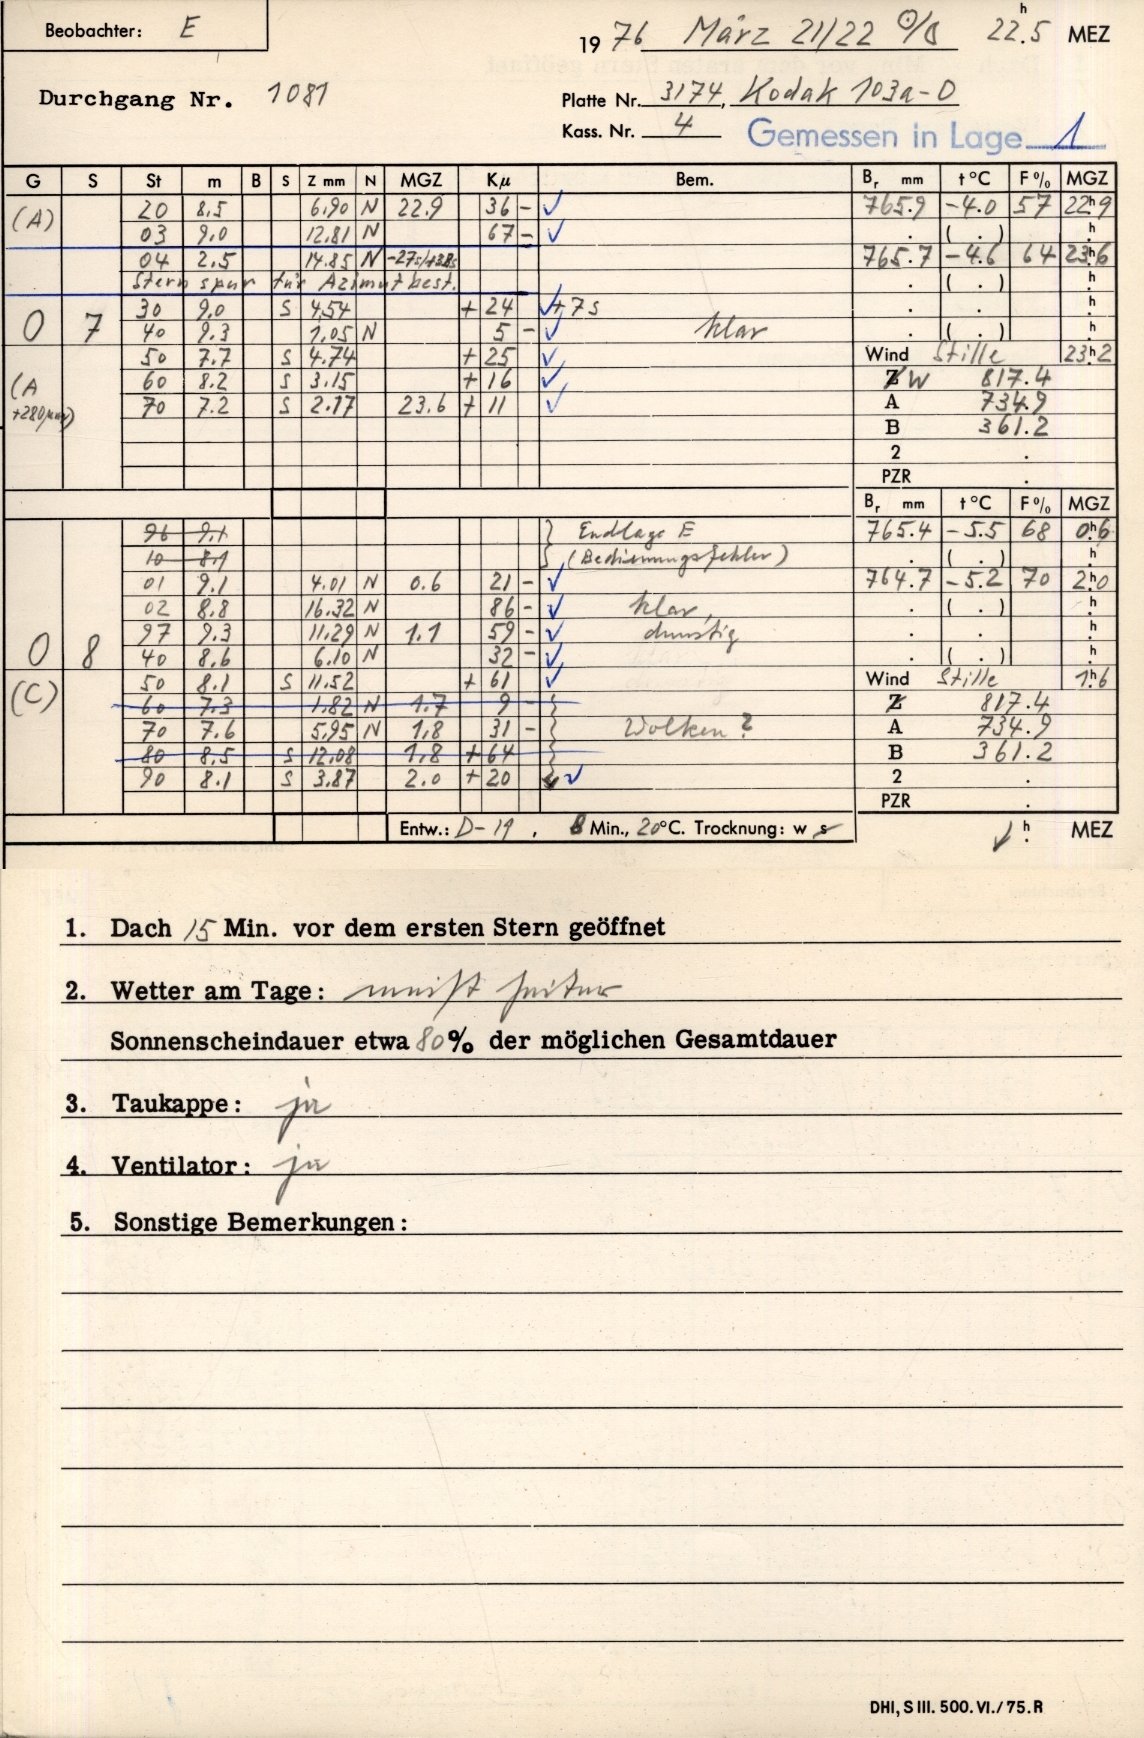 Beobachter: E
19 76 März 21/22 ☉/☾ 22.5 h MEZ
Durchgang Nr. 1081
Platte Nr. 3174, Kodak 103a-O
Kass. Nr. 4
Gemessen in Lage 1
G S St m B S Z mm N MGZ Kμ Bem. Br mm t °C F % MGZ
(A) 20 8.5 6.90 N 22.9 36 - ✓ 765.9 -4.0 57 22h9
03 9.0 12.81 N 67 - ✓ . ( . ) h
04 2.5 14.85 N -27s/+38s 765.7 -4.6 64 23h6
Sternspur für Azimutbest. . ( . ) h
30 9.0 S 4.54 + 24 ✓ +7s . . h
0 7 40 9.3 1.05 N 5 - ✓ klar . ( . ) h
50 7.7 S 4.74 + 25 ✓ Wind Stille 23h2
(A 60 8.2 S 3.15 + 16 ✓ Z W 817.4
+280μm) 70 7.2 S 2.17 23.6 + 11 ✓ A 734.9
B 361.2
2 .
PZR .
Br mm t °C F % MGZ
96 9.1 Endlage E 765.4 -5.5 68 0h6
10 8.9 (Bedienungsfehler) . ( . ) h
01 9.1 4.01 N 0.6 21 - ✓ 764.7 -5.2 70 2h0
02 8.8 16.32 N 86 - ✓ klar, . ( . ) h
97 9.3 11.29 N 1.1 59 - ✓ dunstig . . h
0 8 40 8.6 6.10 N 32 - ✓ . ( . ) h
(C) 50 8.1 S 11.52 + 61 ✓ Wind Stille 1h6
60 7.3 1.82 N 1.7 9 - Z 817.4
70 7.6 5.95 N 1.8 31 - Wolken? A 734.9
80 8.5 S 12.08 1.8 + 64 B 361.2
90 8.1 S 3.87 2.0 + 20 ✓ 2 .
PZR .
Entw.: D-19, 8 Min., 20°C. Trocknung: w s ✓ h. MEZ
1. Dach 15 Min. vor dem ersten Stern geöffnet
2. Wetter am Tage: meist heiter
Sonnenscheindauer etwa 80% der möglichen Gesamtdauer
3. Taukappe: ja
4. Ventilator: ja
5. Sonstige Bemerkungen:
DHI, S III. 500. VI./75. R